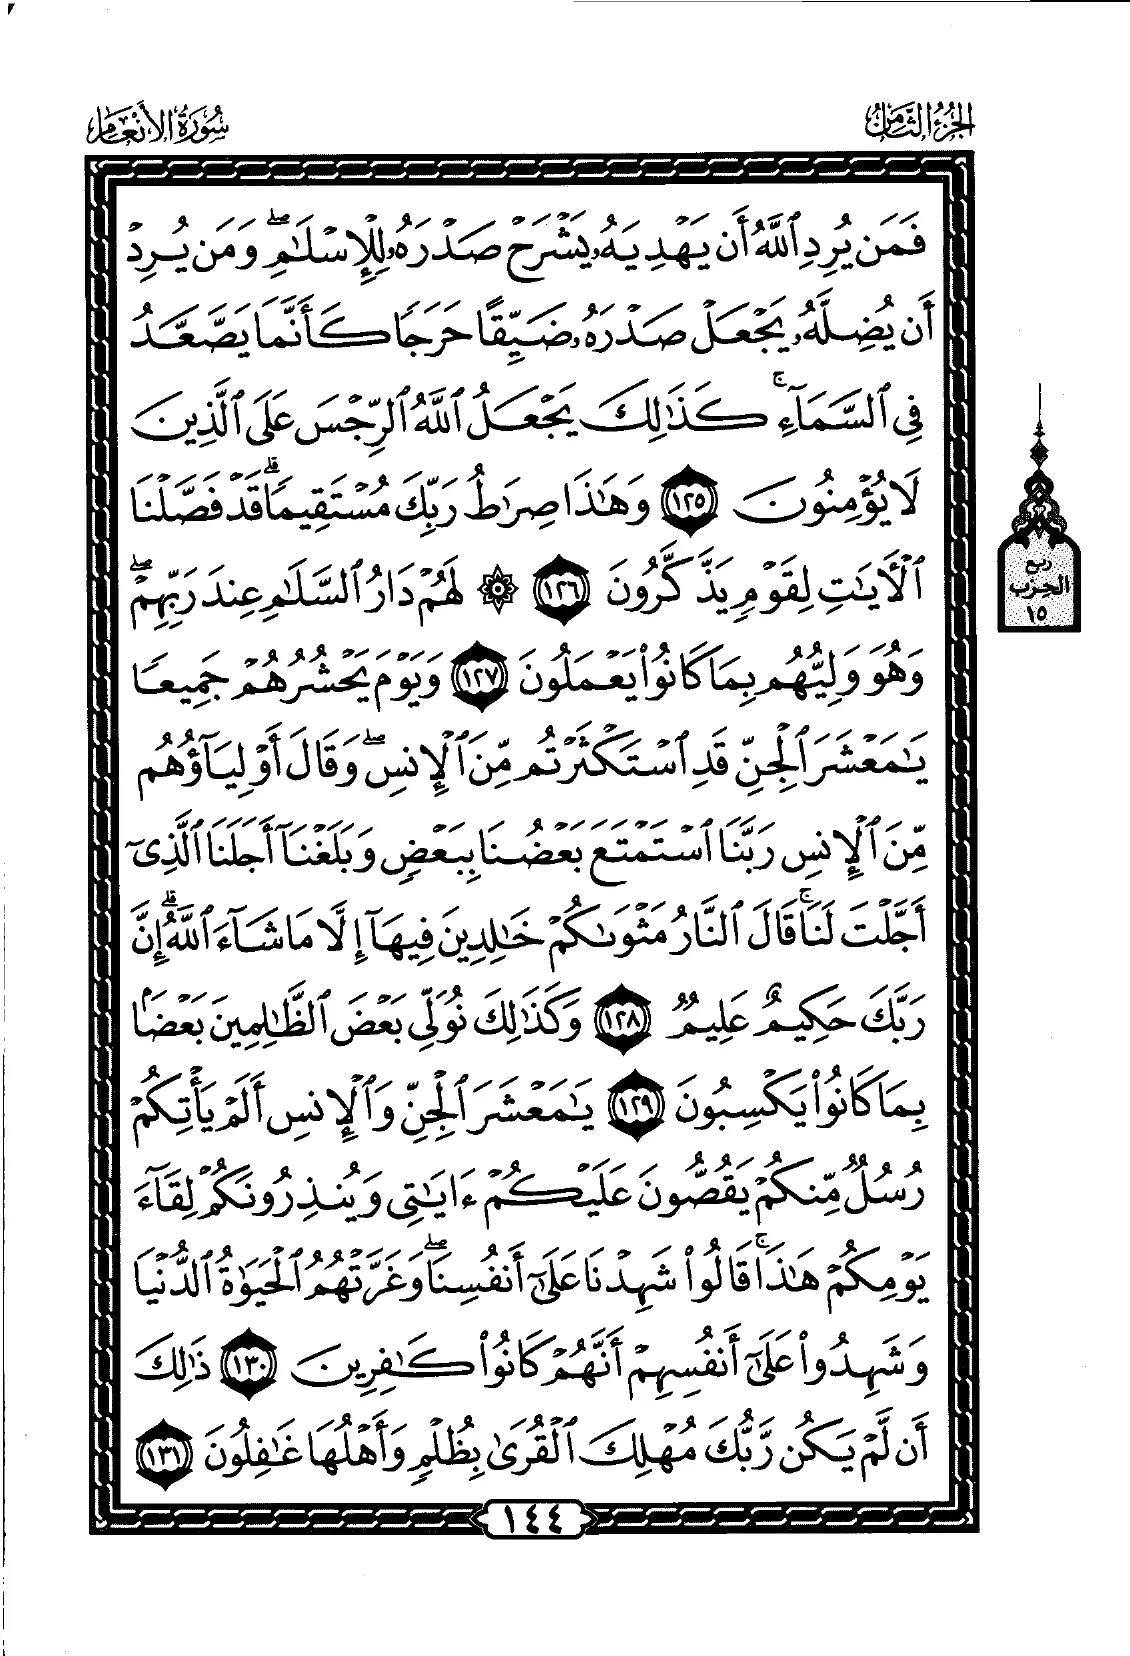 الجزء الثامن
سورة الأنعام
فَمَن يُرِدِ ٱللَّهُ أَن يَهْدِيَهُۥ يَشْرَحْ صَدْرَهُۥ لِلْإِسْلَٰمِ ۖ وَمَن يُرِدْ
أَن يُضِلَّهُۥ يَجْعَلْ صَدْرَهُۥ ضَيِّقًا حَرَجًا كَأَنَّمَا يَصَّعَّدُ
فِى ٱلسَّمَآءِ ۚ كَذَٰلِكَ يَجْعَلُ ٱللَّهُ ٱلرِّجْسَ عَلَى ٱلَّذِينَ
لَا يُؤْمِنُونَ ١٢٥ وَهَٰذَا صِرَٰطُ رَبِّكَ مُسْتَقِيمًا ۗ قَدْ فَصَّلْنَا
ٱلْءَايَٰتِ لِقَوْمٍ يَذَّكَّرُونَ ١٢٦ ۞ لَهُمْ دَارُ ٱلسَّلَٰمِ عِندَ رَبِّهِمْ ۖ
وَهُوَ وَلِيُّهُم بِمَا كَانُوا۟ يَعْمَلُونَ ١٢٧ وَيَوْمَ يَحْشُرُهُمْ جَمِيعًا
يَٰمَعْشَرَ ٱلْجِنِّ قَدِ ٱسْتَكْثَرْتُم مِّنَ ٱلْإِنسِ ۖ وَقَالَ أَوْلِيَآؤُهُم
مِّنَ ٱلْإِنسِ رَبَّنَا ٱسْتَمْتَعَ بَعْضُنَا بِبَعْضٍ وَبَلَغْنَآ أَجَلَنَا ٱلَّذِىٓ
أَجَّلْتَ لَنَا ۚ قَالَ ٱلنَّارُ مَثْوَىٰكُمْ خَٰلِدِينَ فِيهَآ إِلَّا مَا شَآءَ ٱللَّهُ ۗ إِنَّ
رَبَّكَ حَكِيمٌ عَلِيمٌ ١٢٨ وَكَذَٰلِكَ نُوَلِّى بَعْضَ ٱلظَّٰلِمِينَ بَعْضًۢا
بِمَا كَانُوا۟ يَكْسِبُونَ ١٢٩ يَٰمَعْشَرَ ٱلْجِنِّ وَٱلْإِنسِ أَلَمْ يَأْتِكُمْ
رُسُلٌ مِّنكُمْ يَقُصُّونَ عَلَيْكُمْ ءَايَٰتِى وَيُنذِرُونَكُمْ لِقَآءَ
يَوْمِكُمْ هَٰذَا ۚ قَالُوا۟ شَهِدْنَا عَلَىٰٓ أَنفُسِنَا ۖ وَغَرَّتْهُمُ ٱلْحَيَوٰةُ ٱلدُّنْيَا
وَشَهِدُوا۟ عَلَىٰٓ أَنفُسِهِمْ أَنَّهُمْ كَانُوا۟ كَٰفِرِينَ ١٣٠ ذَٰلِكَ
أَن لَّمْ يَكُن رَّبُّكَ مُهْلِكَ ٱلْقُرَىٰ بِظُلْمٍ وَأَهْلُهَا غَٰفِلُونَ ١٣١
ربع
الحزب
١٥
١٤٤